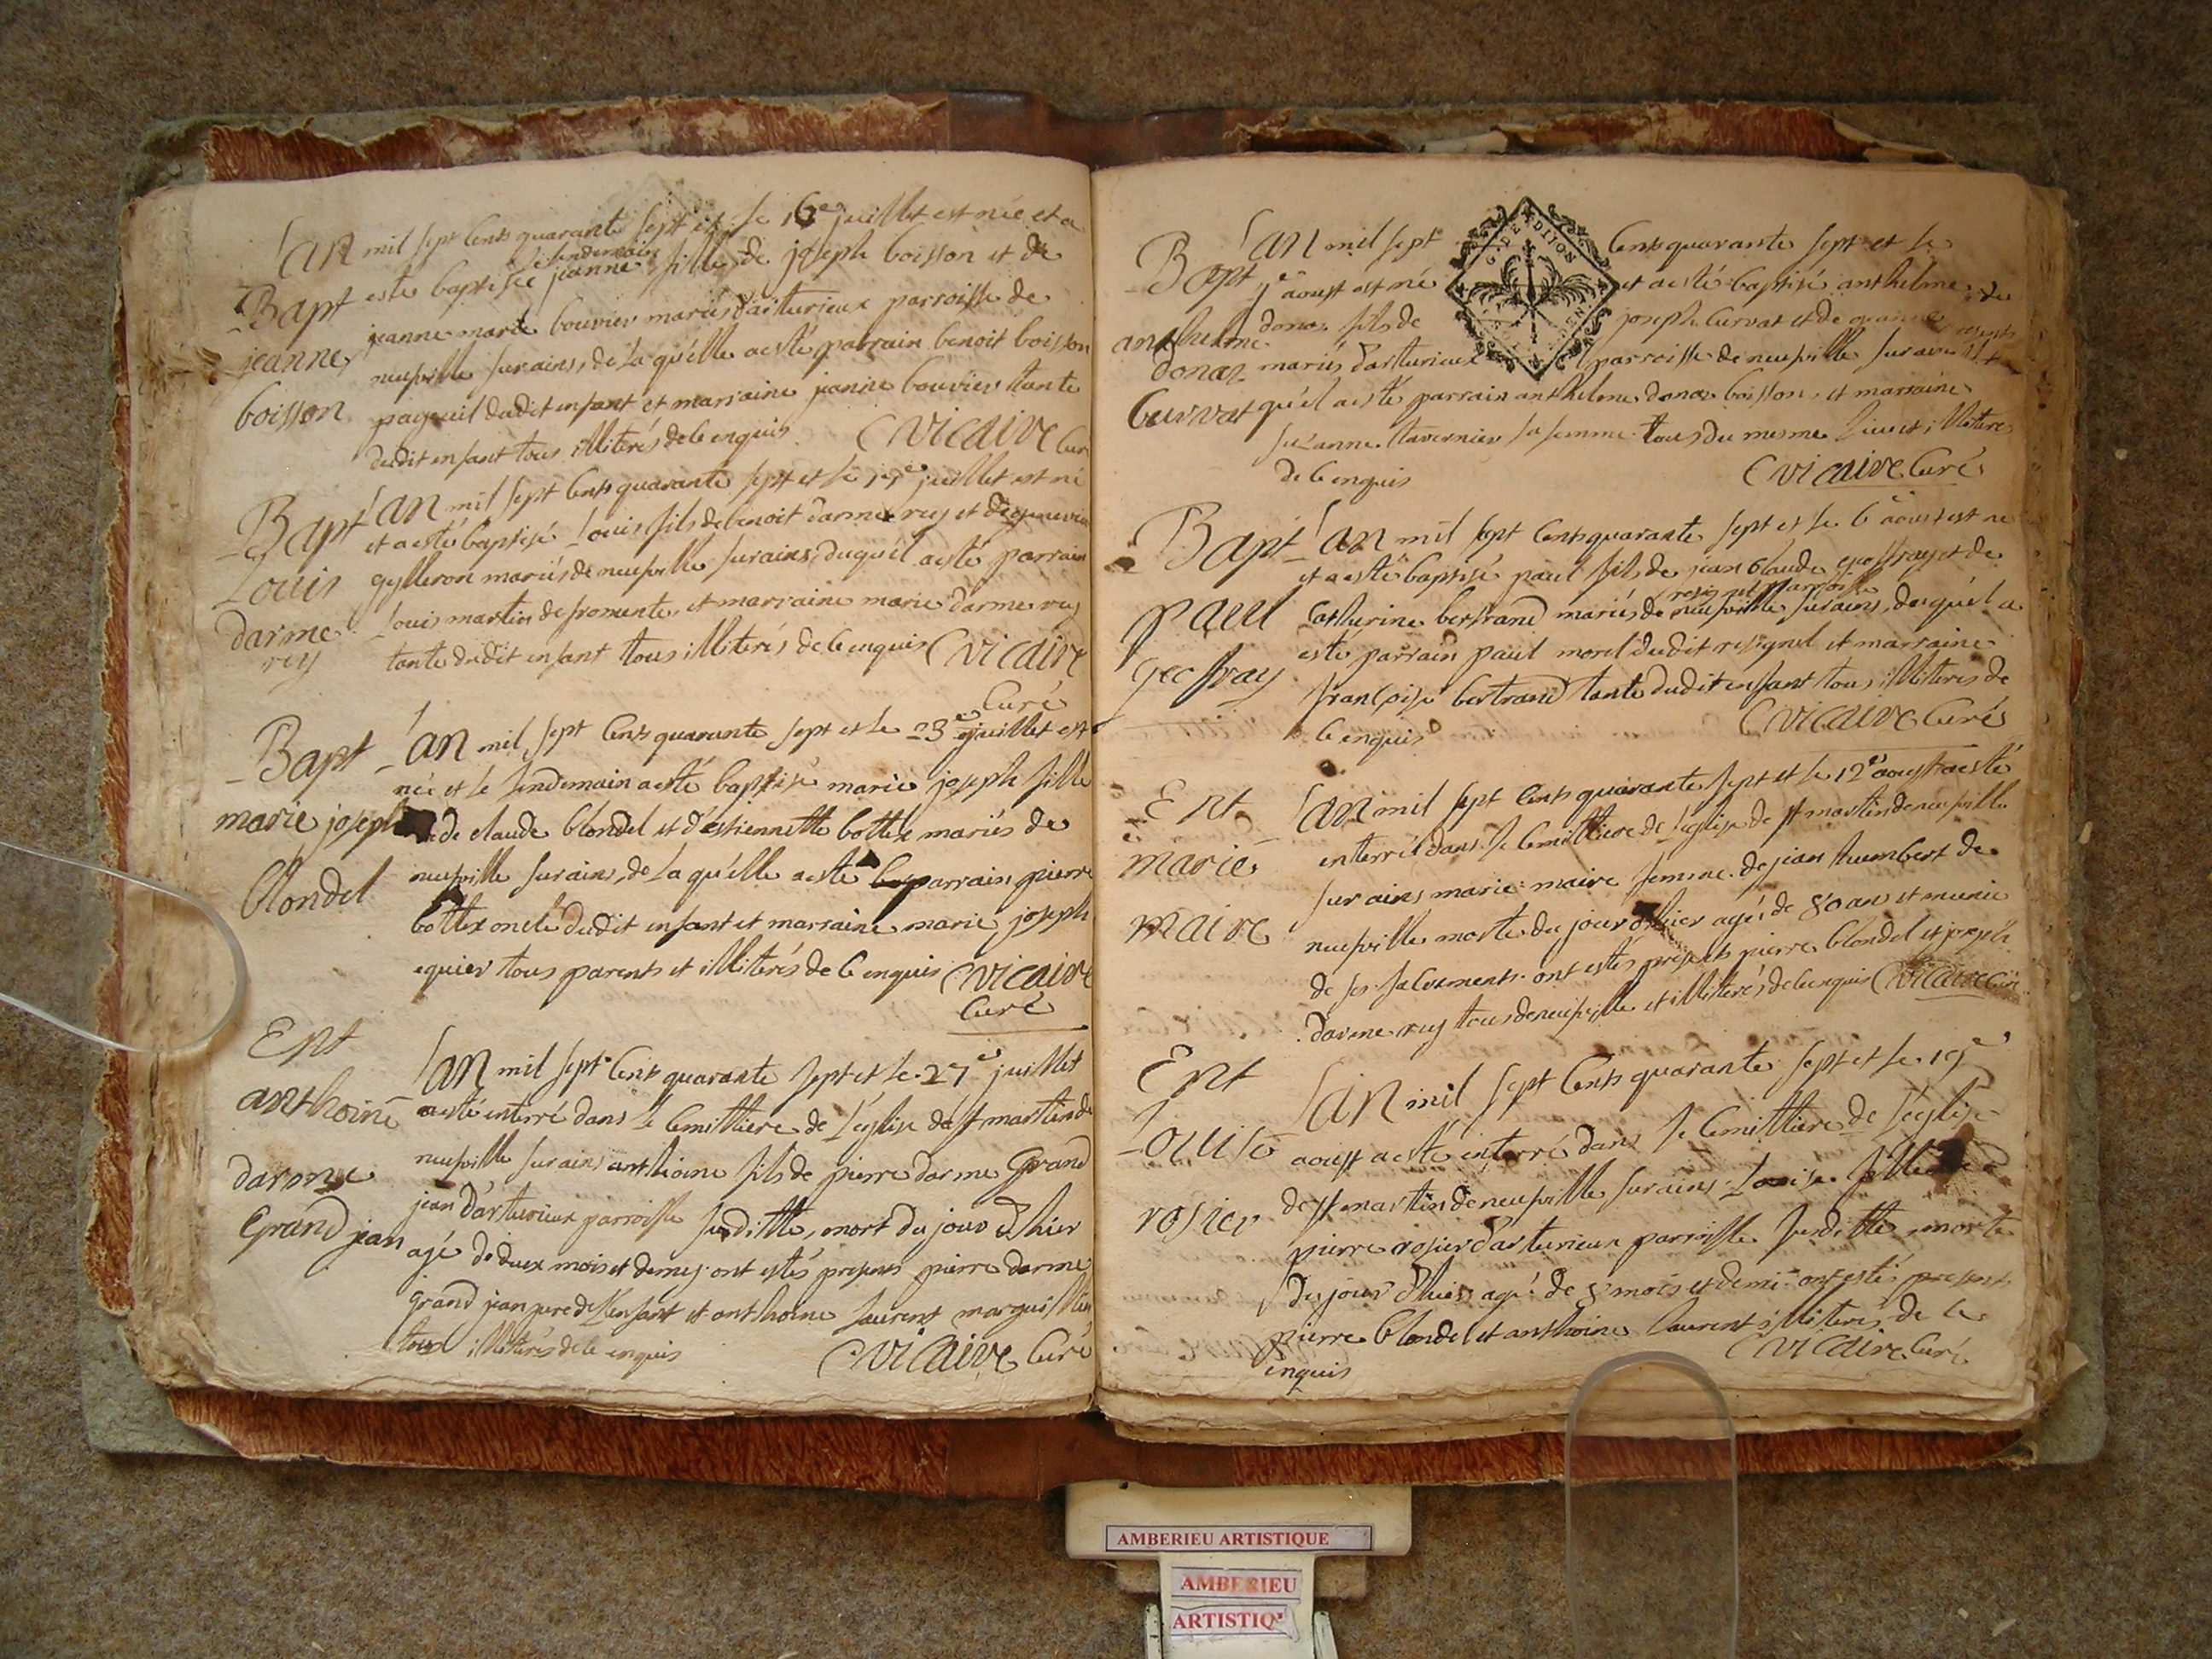 Bapt
jeanne
boisson
L'an mil sept cents quarante sept et le 16e juillet est née et a
le lendemain
esté baptisée jeanne fille de joseph boisson et de
jeanne marie bouvier mariés d'arturieux parroisse de
neufville sur ains, de la qu'elle a esté parrain benoit boisson
dudit enfant et marraine jeanne bouvier tante
dudit enfant tous illiterés de ce enquis Vicaire Curé
Bapt
Louis
darme
rey
L'an mil sept cents quarante sept et le juillet est né
et a esté baptisé Louis fils de benoit darme rey et de
gylleron mariés de neufville sur ains, duqu'el a esté parrain
Louis martin de fromente, et marraine marie darme rey
tante dudit enfant tous illiterés de ce enquis Vicaire
Curé
Bapt
marie joseph
blondel
L'an mil sept cents quarante sept et le 23e juillet est
née et le lendemain a esté baptisé marie joseph fille
de claude blondel et d'estiennette bottex mariés de
neufville sur ains, de la qu'elle a esté parrain pierre
bottex oncle dudit enfant et marraine marie joseph
equier tous parents et illiterés de ce enquis Vicaire
Curé
Ent
anthoine
darme
Grand jean
L'an mil sept cents quarante sept et le 27e juillet
a esté enterré dans le cemittiere de l'eglise de st martin de
neufville sur ains anthoine fils de pierre darme Grand
jean d'arturieux parroisse susditte, mort du jour d'hier
agé de deux mois et demy ont estés presents pierre darme
Grand jean pere de l'enfant et anthoine Laurent marguillier
tous illiterés de ce enquis Vicaire Curé
Bapt
anthelme
donat
Curvat
L'an mil sept cents quarante sept et le
aoust est né et a esté baptisé anthelme
donat fils de joseph Curvat et de
mariés d'arturieux parroisse de neufville sur ains
qu'el a esté parrain anthelme donat boisson, et marraine
suzanne tavernier sa femme tous du mesme lieu et illiteré
de ce enquis Vicaire Curé
Bapt
paul
geoffray
L'an mil sept cents quarante sept et le 6e aoust est né
et a esté baptisé paul fils de jean claude geoffray et de
resignel parroisse
Catherine bertrand mariés de neufville sur ains, duqu'el a
esté parrain paul morel dudit resignel et marraine
françoise bertrand tante dudit enfant tous illiterés de
ce enquis Vicaire Curé
Ent
marie
maire
L'an mil sept cents quarante sept et le 12e aoust a esté
enterré dans le cemittiere de l'eglise de st martin de neufville
sur ains marie maire femme de jean humbert de
neufville morte du jour d'hier agée de 80 ans et munie
de ses sacrements ont estés presents pierre blondel et joseph
darme rey tous de neufville et illiterés de ce enquis Vicaire Curé
Ent
Louise
rosier
L'an mil sept cents quarante sept et le 19e
aoust a esté enterré dans le cemittiere de l'eglise
de st martin de neufville sur ains Louise fille de
pierre rosier d'arturieux parroisse susditte morte
du jour d'hier agé de 8 mois et demi ont estés presents
pierre blondel et anthoine Laurent illiterés de ce
enquis Vicaire Curé
AMBERIEU ARTISTIQUE
AMBERIEU
ARTISTIQ